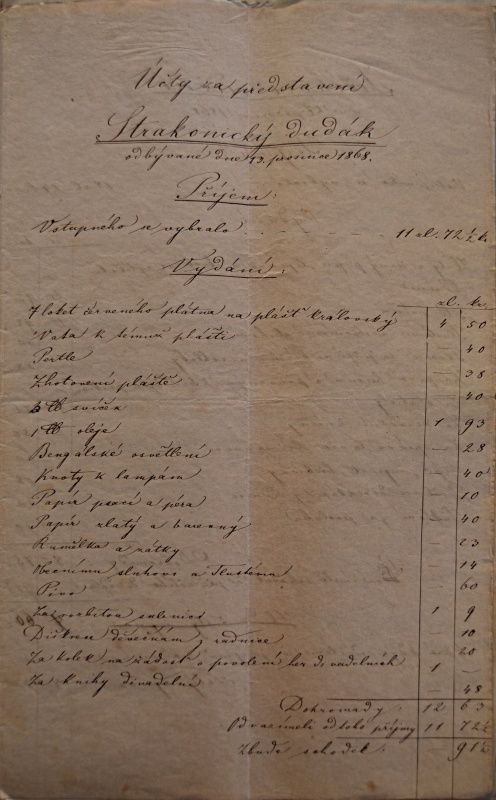 Účty za představení
Strakonický dudák
odbývané dne 13. prosince 1868.
Příjem:
Vstupného se vybralo . . . - - - 11 zl. 72½ kr.
Vydání:
zl. kr.
7 loket červeného plátna na plášť královský 4 50
Vata k témuž plášti — 40
Portle — 38
Zhotovení pláště — 40
svíček 1 93
1 ℔ oleje — 28
Bengálské osvětlení — 40
Knoty k lampám — 10
Papír psací a péra — 40
Papír zlatý a barevný — 23
a zátky — 14
sluhovi a 60
Pivo 1 9
Za rozbitou sklenici — 10
děvečkám z radnice — 20
Za kolek na žádost o povolení her divadelních 1 —
Za knihy divadelní — 48
Dohromady 12 63
odtoho příjmy 11 72½
Zbude schodek — 91½